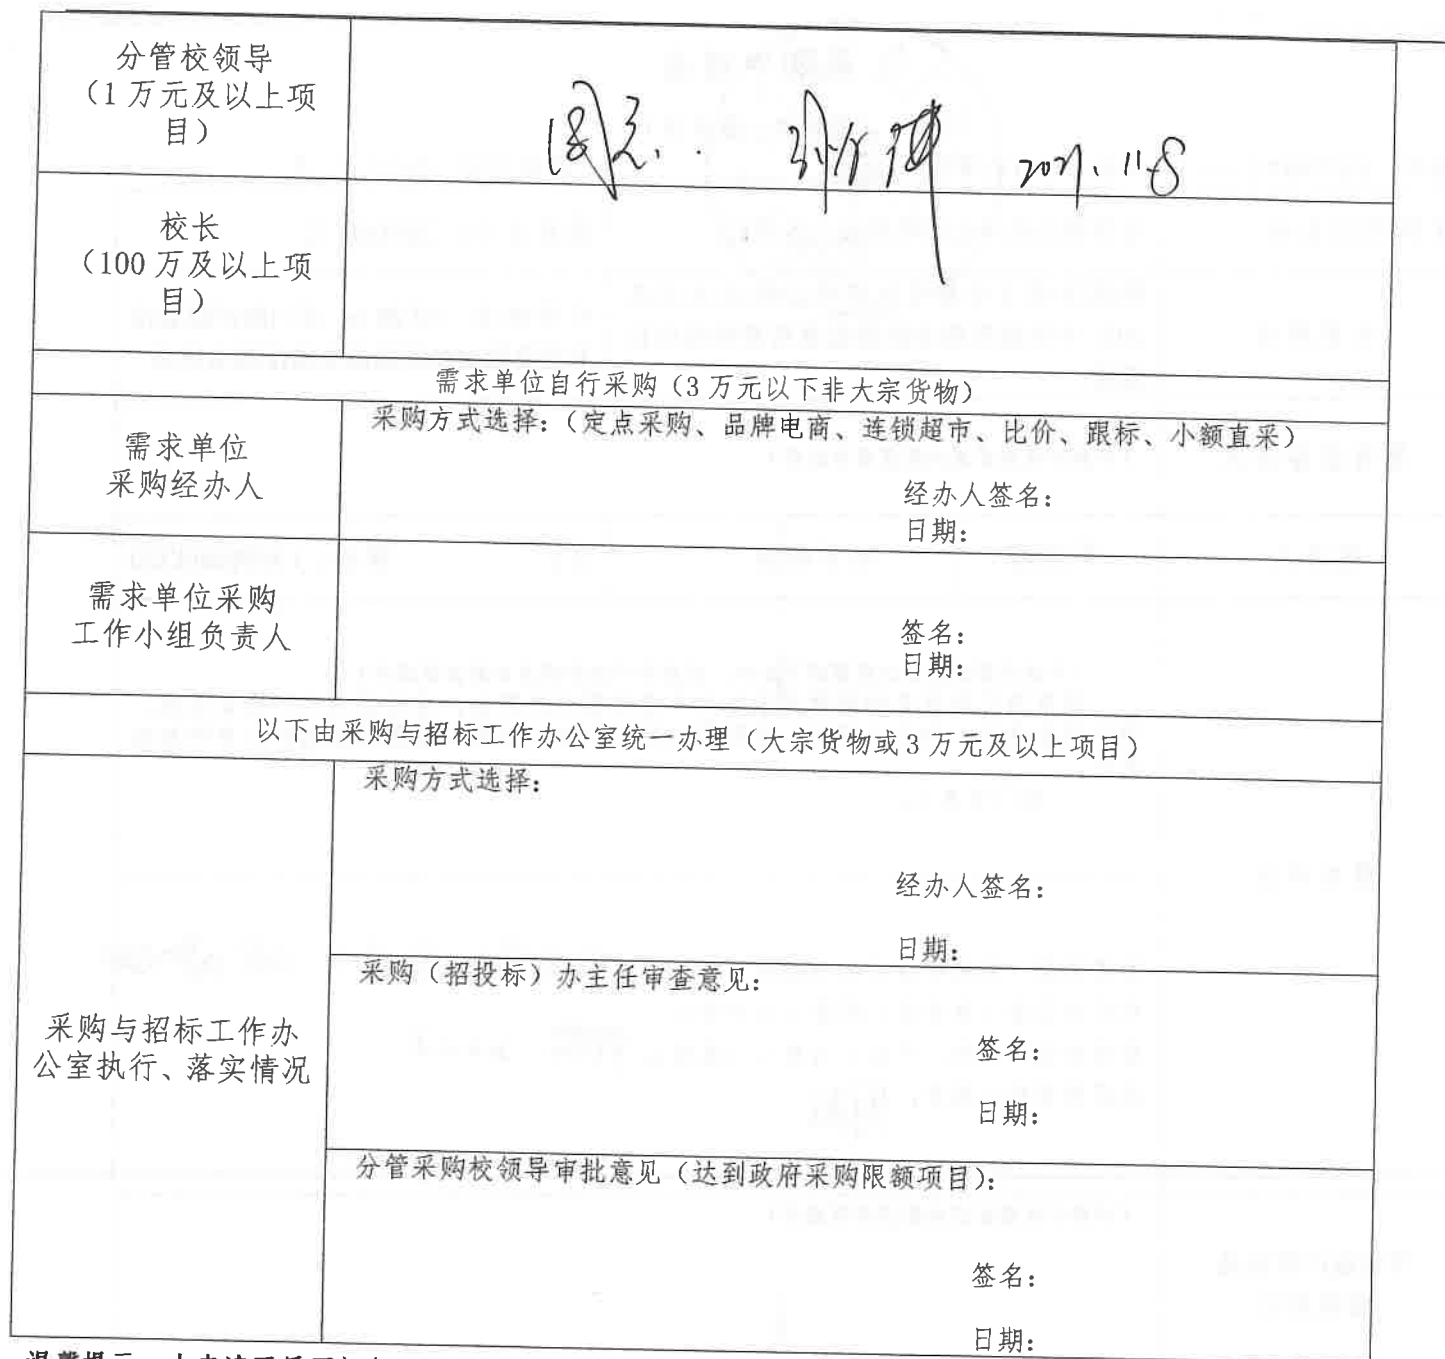 分管校领导
（1万元及以上项
目）
同意. 2021.11.8
校长
（100万及以上项
目）
需求单位自行采购（3万元以下非大宗货物）
需求单位
采购经办人
采购方式选择：（定点采购、品牌电商、连锁超市、比价、跟标、小额直采）
经办人签名：
日期：
需求单位采购
工作小组负责人
签名：
日期：
以下由采购与招标工作办公室统一办理（大宗货物或3万元及以上项目）
采购与招标工作办
公室执行、落实情况
采购方式选择：
经办人签名：
日期：
采购（招投标）办主任审查意见：
签名：
日期：
分管采购校领导审批意见（达到政府采购限额项目）：
签名：
日期：